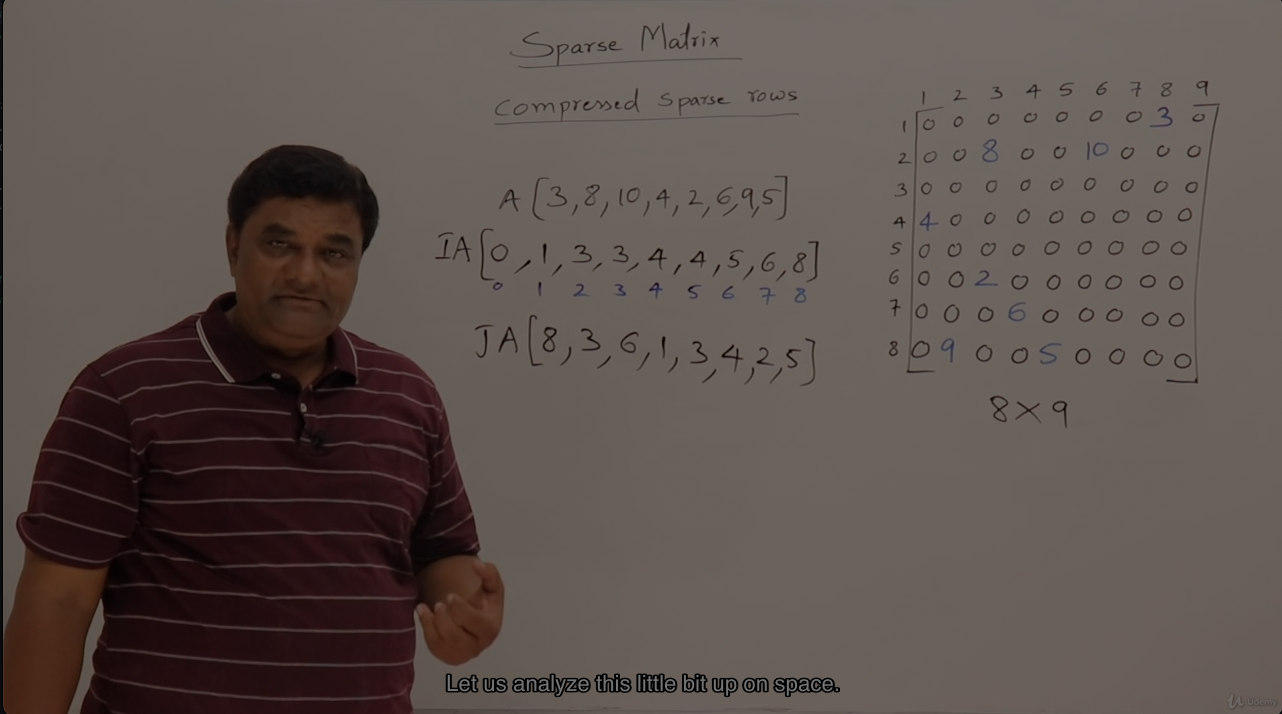 Sparse Matrix
Compressed Sparse rows
A [3,8,10,4,2,6,9,5]
IA [0,1,3,3,4,4,5,6,8]
0 1 2 3 4 5 6 7 8
JA [8,3,6,1,3,4,2,5]
1 2 3 4 5 6 7 8 9
1 0 0 0 0 0 0 0 3 0
2 0 0 8 0 0 10 0 0 0
3 0 0 0 0 0 0 0 0 0
4 4 0 0 0 0 0 0 0 0
5 0 0 0 0 0 0 0 0 0
6 0 0 2 0 0 0 0 0 0
7 0 0 0 6 0 0 0 0 0
8 0 9 0 0 5 0 0 0 0
8×9
Let us analyze this little bit up on space.
Udemy